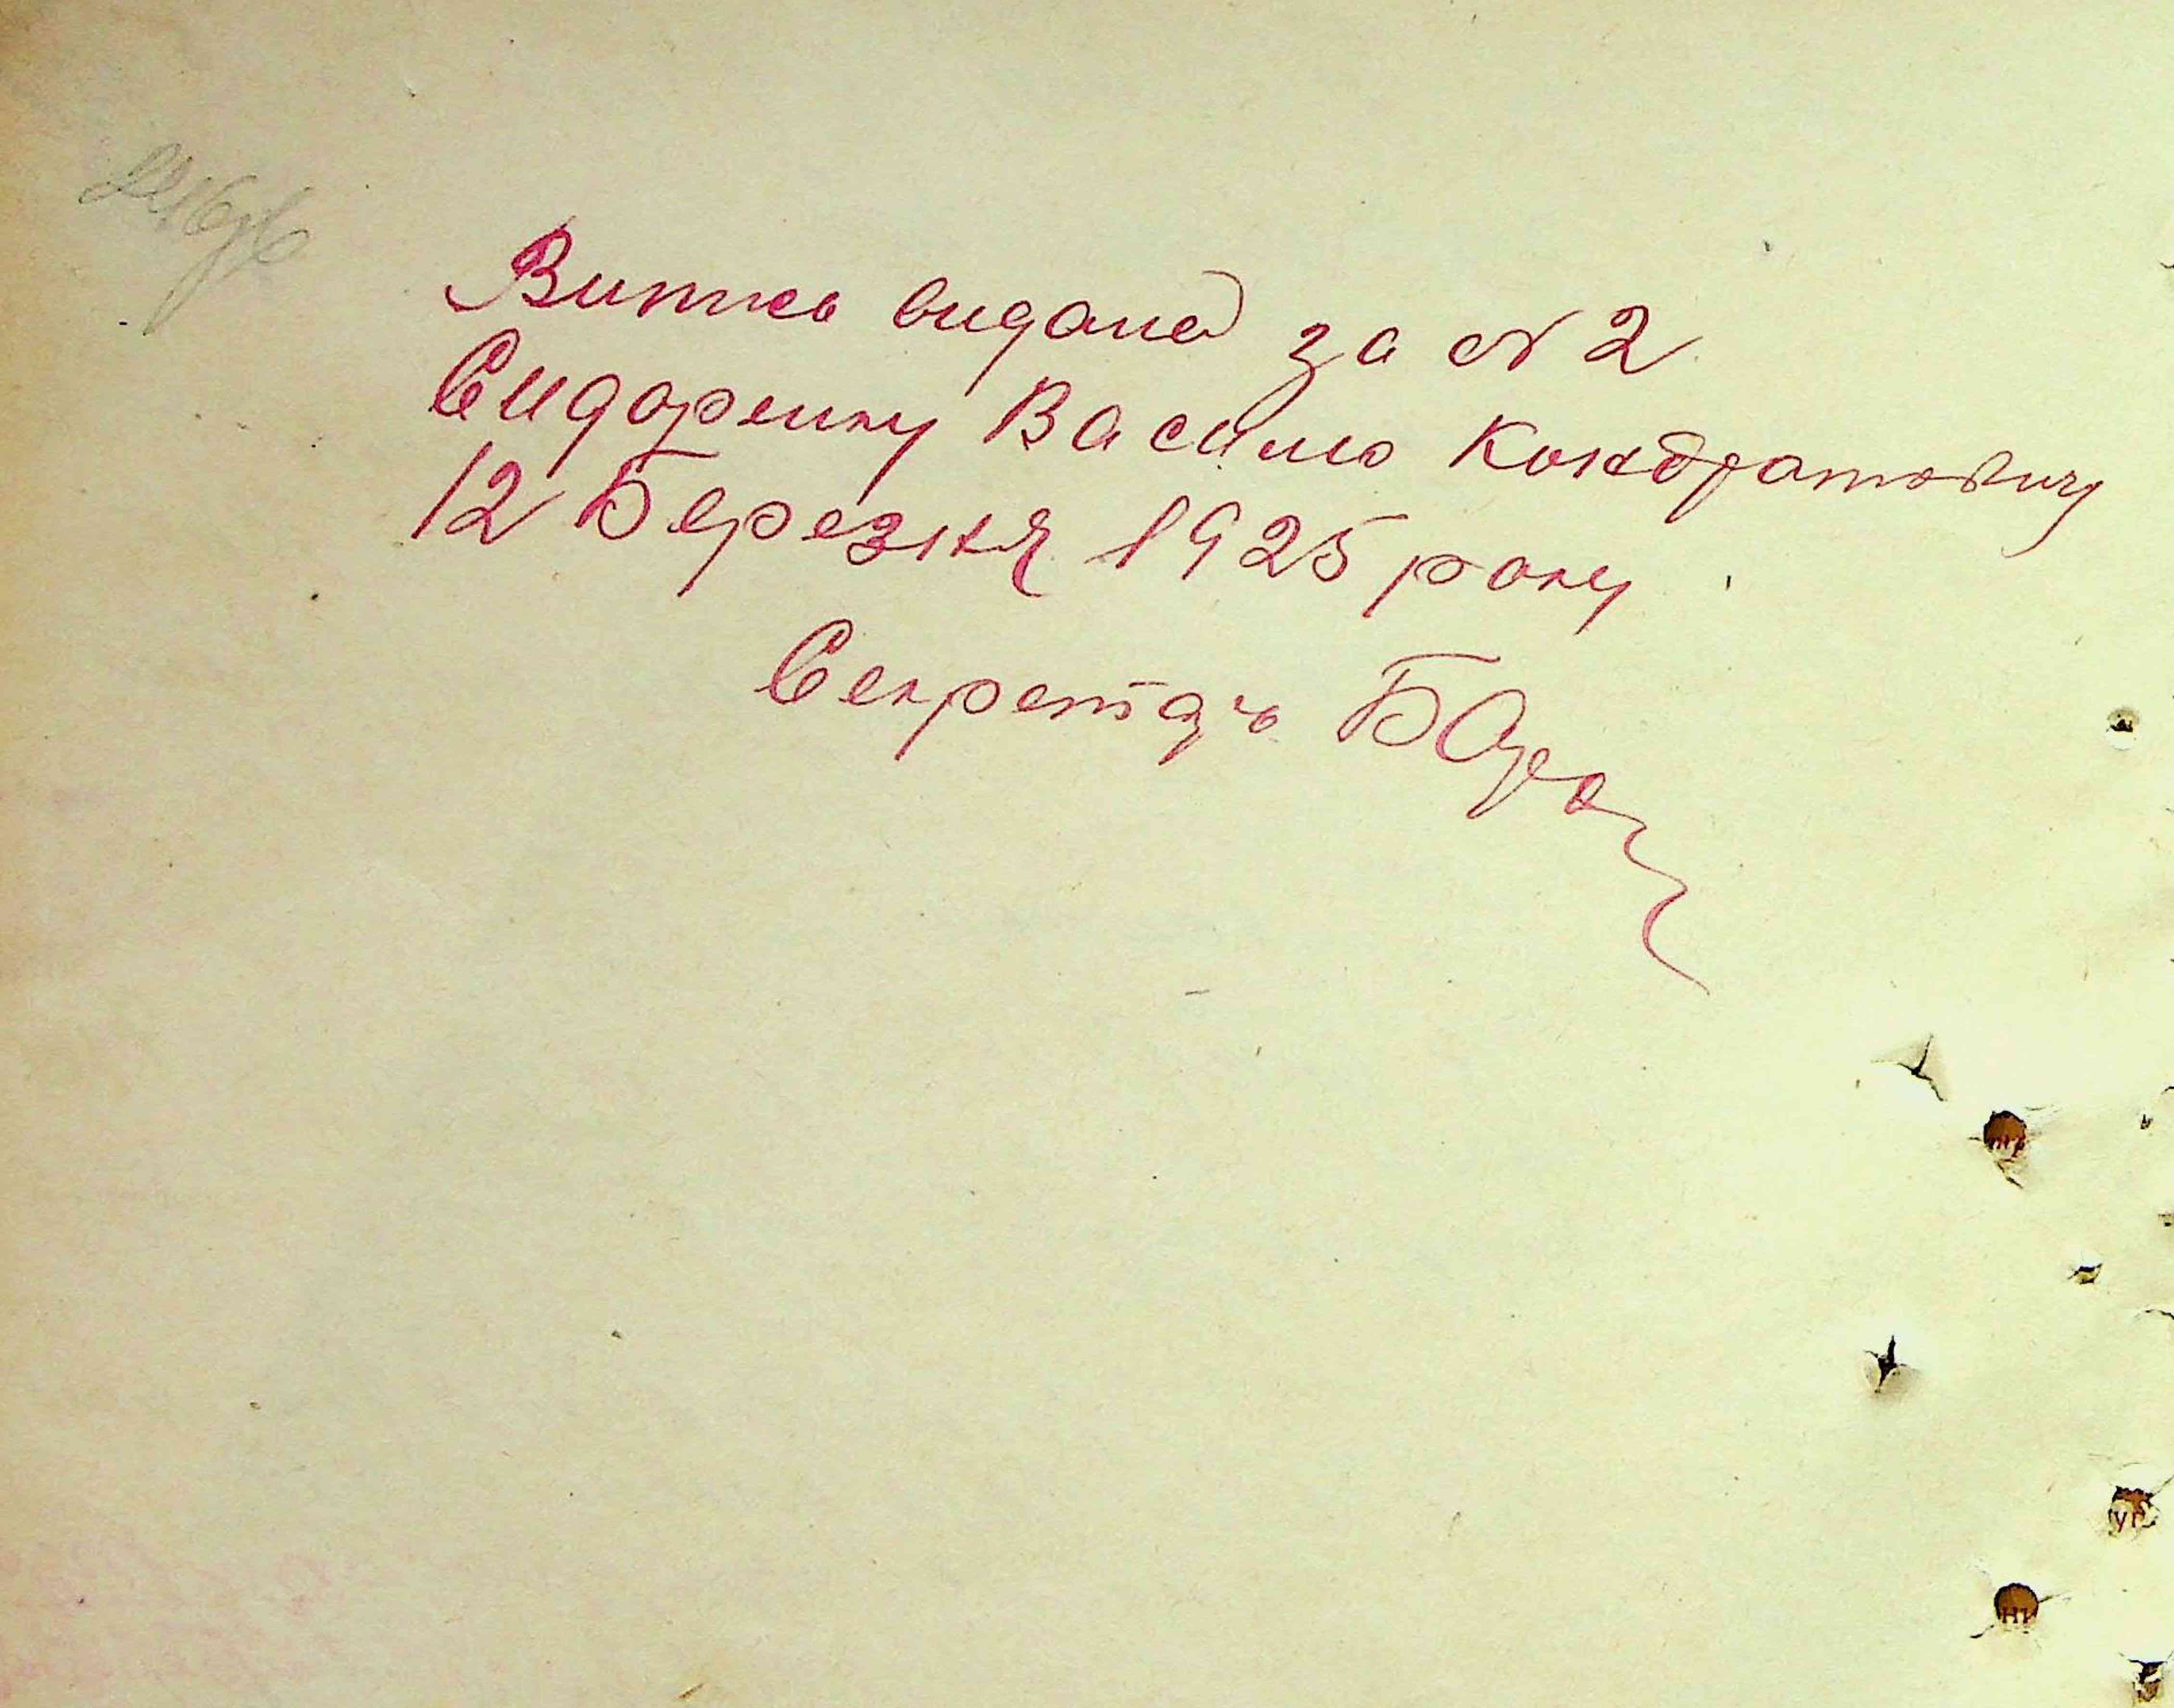 Випись видана за № 2
Сидоренку Василю Кондратовичу
12 Березня 1925 року
Секретарь